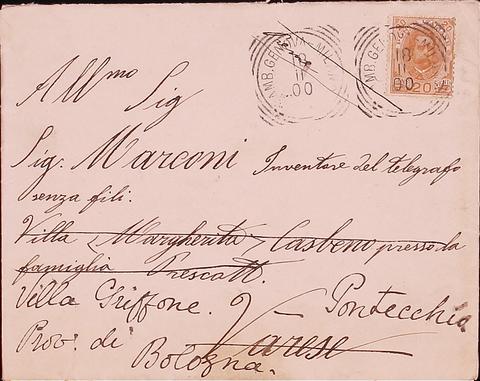 AMB. GENOVA-MIL
18
11
00
AMB. GENOVA
18
11
00
20
All mo Sig
Sig. Marconi Inventore del telegrafo
senza fili.
Villa "Margherita" Casbeno presso la
famiglia Prescott.
Villa Griffone. Pontecchio
Varese
Prov. di
Bologna.